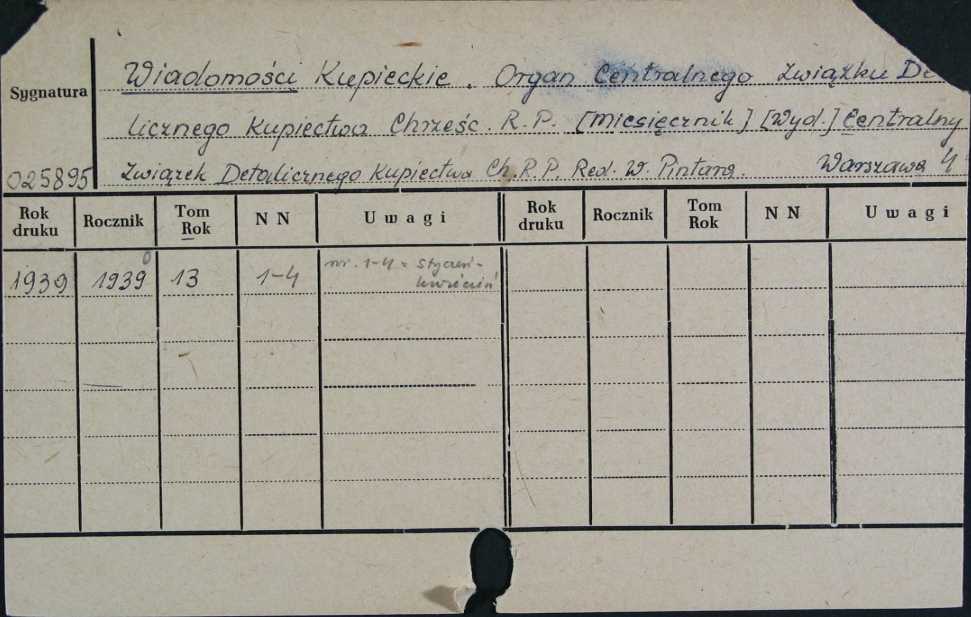 Wiadomości Kupieckie. Organ Centralnego Związku De
Sygnatura
licznego Kupiectwa Chrześc. R.P. [miesięcznik] [Wyd.] Centralny
025895 Związek Detalicznego Kupiectwa Ch. R. P. Red. W. Pintara. Warszawa 4
Rok druku Rocznik Tom Rok N N Uwagi Rok druku Rocznik Tom Rok N N Uwagi
1939 1939 0 13 1-4 nr. 1-4 = styczeń-
kwiecień